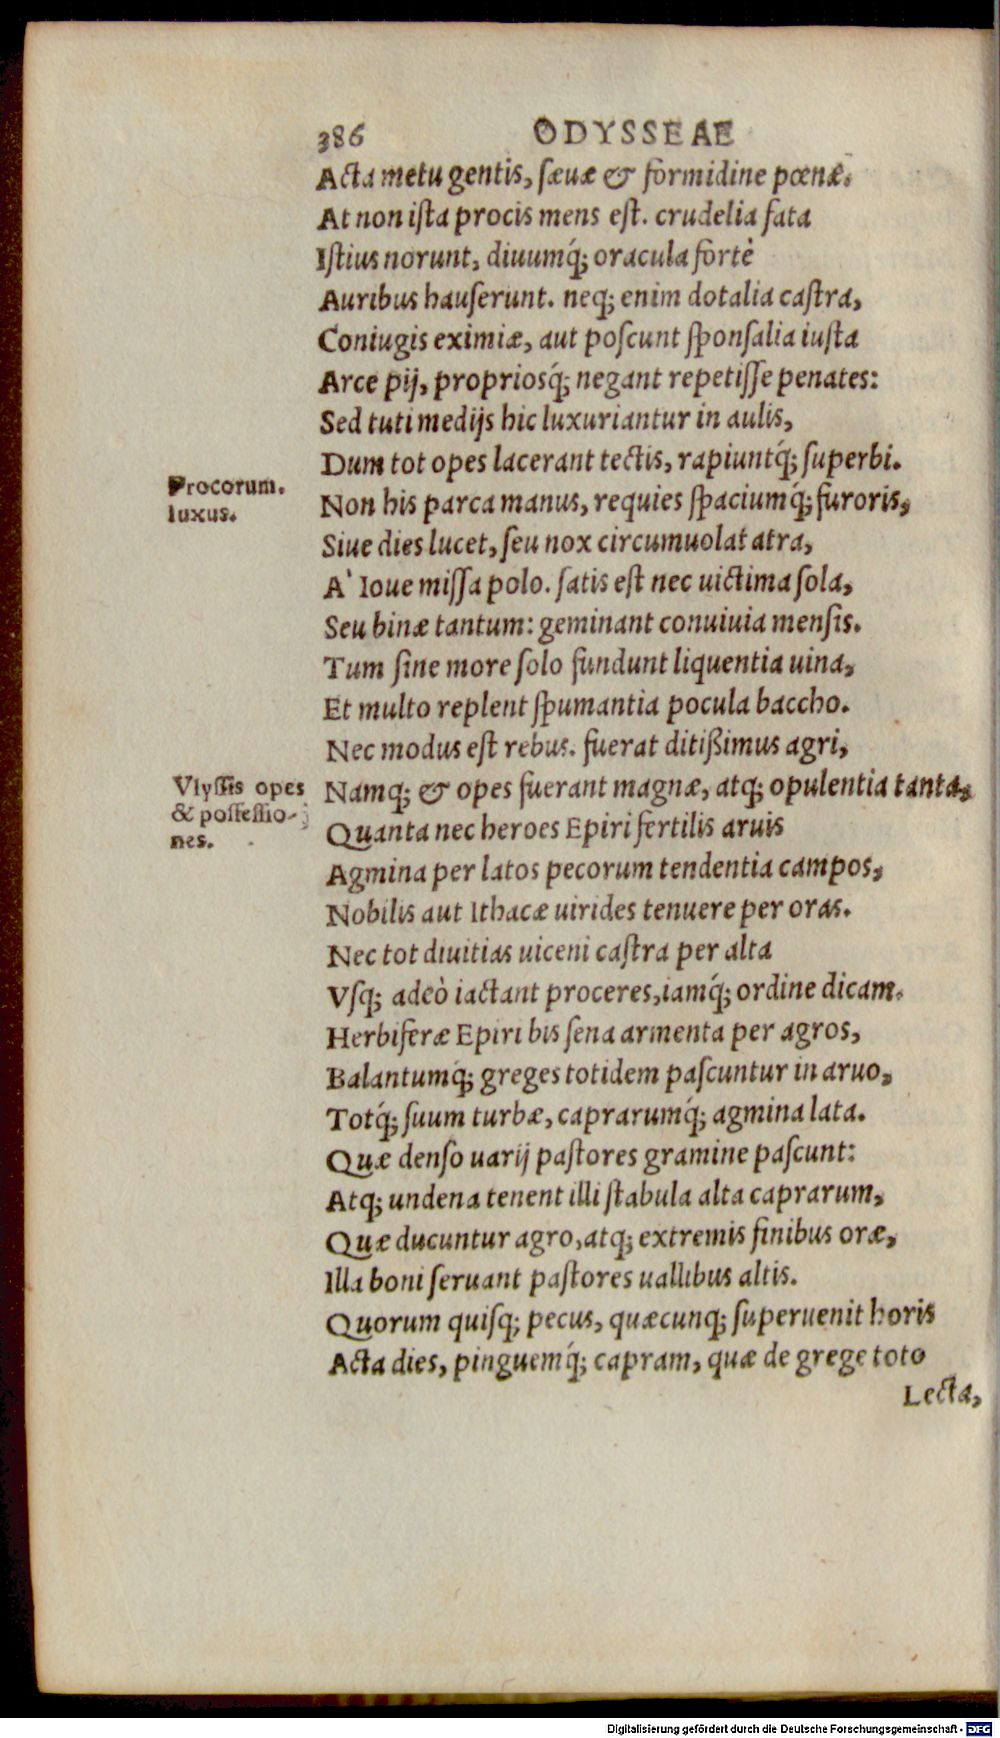 386 ODYSSEAE
Acta metu gentis, sæuæ & formidine pœnæ.
At non ista procis mens est. crudelia fata
Istius norunt, diuumq́; oracula fortè
Auribus hauserunt. neq; enim dotalia castra,
Coniugis eximiæ, aut poscunt sponsalia iusta
Arce pij, propriosq́; negant repetisse penates:
Sed tuti medijs hic luxuriantur in aulis,
Dum tot opes lacerant tectis, rapiuntq́; superbi.
Procorum.
luxus.
Non his parca manus, requies spaciumq́; furoris,
Siue dies lucet, seu nox circumuolat atra,
A' Ioue missa polo. satis est nec uictima sola,
Seu binæ tantum: geminant conuiuia mensis.
Tum sine more solo fundunt liquentia uina,
Et multo replent spumantia pocula baccho.
Nec modus est rebus. fuerat ditißimus agri,
Vlyssis opes
& possessio-
nes.
Namq; & opes fuerant magnæ, atq; opulentia tanta,
Quanta nec heroes Epiri fertilis aruis
Agmina per latos pecorum tendentia campos,
Nobilis aut Ithacæ uirides tenuere per oras.
Nec tot diuitias uiceni castra per alta
Vsq; adeò iactant proceres, iamq́; ordine dicam.
Herbiferæ Epiri bis sena armenta per agros,
Balantumq́; greges totidem pascuntur in aruo,
Totq́; suum turbæ, caprarumq́; agmina lata.
Quæ denso uarij pastores gramine pascunt:
Atq; undena tenent illi stabula alta caprarum,
Quæ ducuntur agro, atq; extremis finibus oræ,
Illa boni seruant pastores uallibus altis.
Quorum quisq; pecus, quæcunq; superuenit horis
Acta dies, pinguemq́; capram, quæ de grege toto
Lecta,
Digitalisierung gefördert durch die Deutsche Forschungsgemeinschaft - DFG